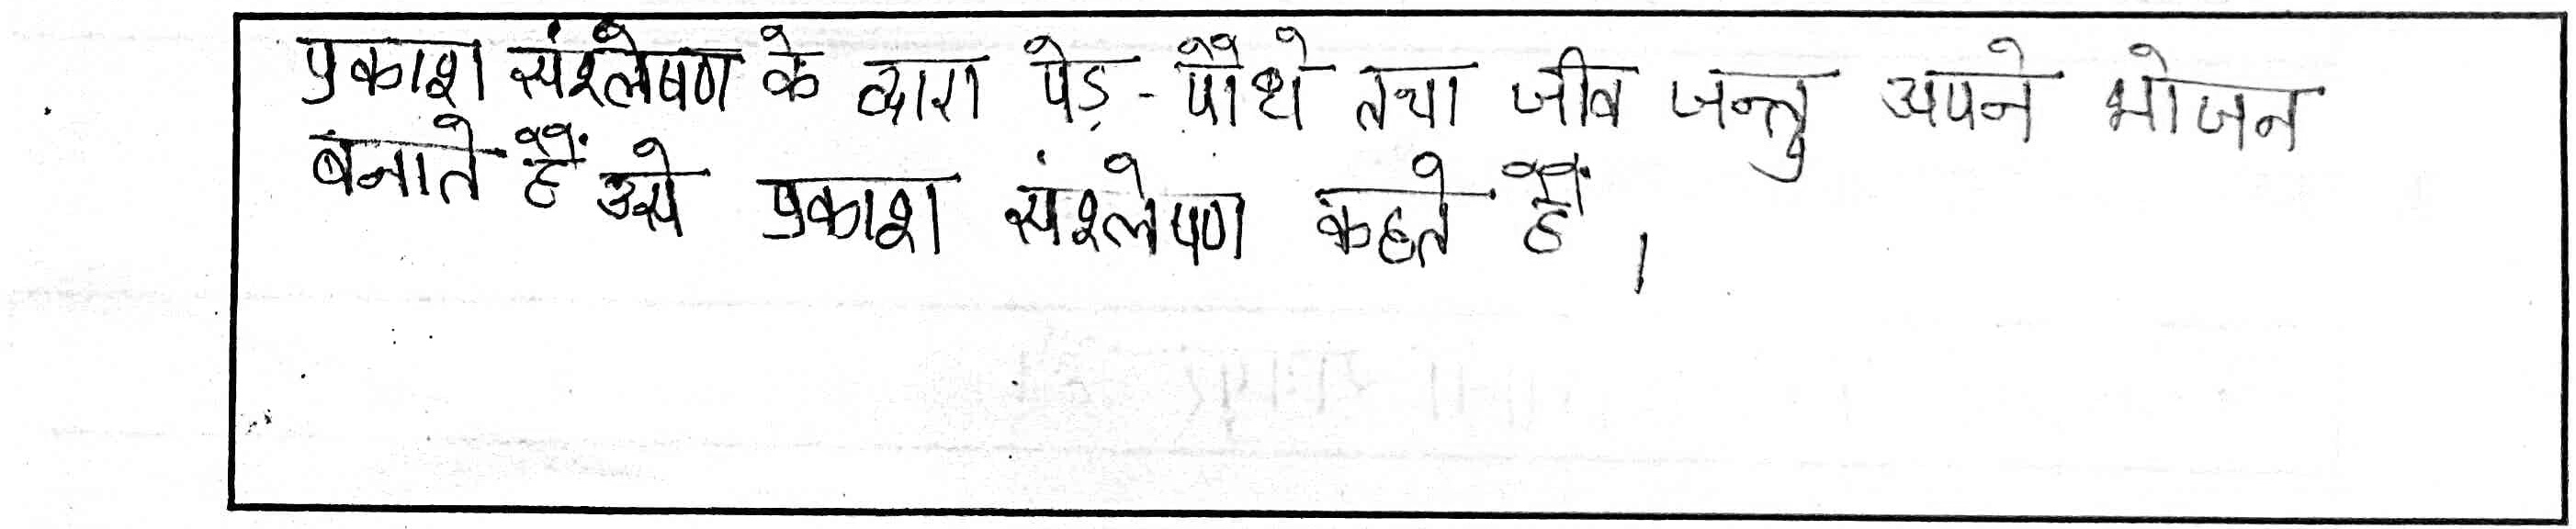 प्रकाश संश्लेषण के द्वारा पेड़ - पौधे तथा जीव जन्तु अपने भोजन
बनाते हैं उसे प्रकाश संश्लेषण कहते हैं ।